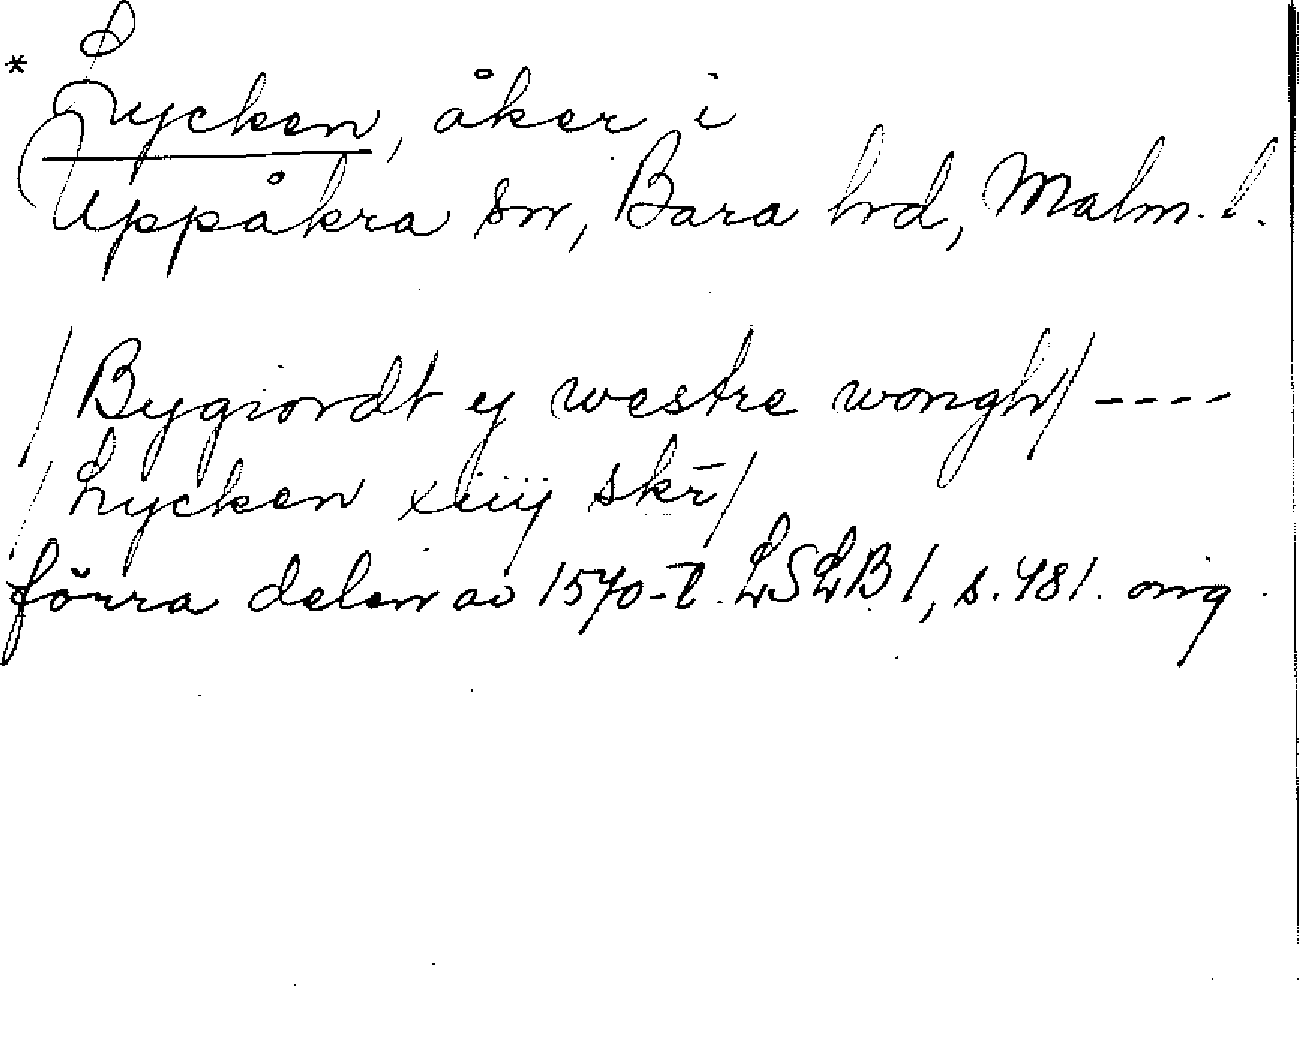 * Lycken, åker i
Uppåkra sn, Bara hd, Malm. l.
/Bygiordt y westre wongh/ ----
/Lycken xiiij skr̄/
förra delen av 1570-t. LSLB 1, s. 481. orig